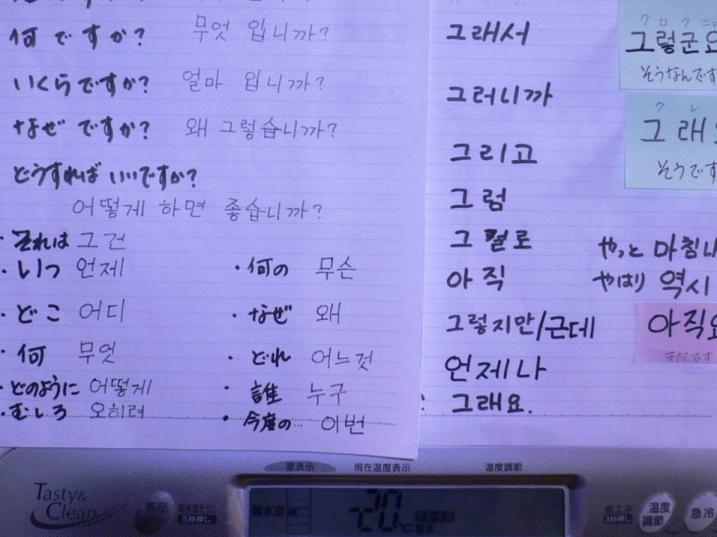 何ですか? 무엇 입니까?
いくらですか? 얼마 입니까?
なぜですか? 왜 그렇습니까?
どうすれば いいですか?
어떻게 하면 좋습니까?
・それは 그건
・いつ 언제
・何の 무슨
・どこ 어디
・なぜ 왜
・何 무엇
・どれ 어느것
・どのように 어떻게
・誰 누구
・むしろ 오히려
・今度の… 이번
그래서
그러니까
그리고
그럼
아직
그렇지만/근데
언제나
그래요.
やっと 마침
やはり 역시
그렇군요
そうなんです
그래
そうです
아직요
まだです
Tasty&
Clean
現在温度表示
温度調節
製氷室
表示
5秒押し
省エネ
3秒押し
温度
調節
急冷